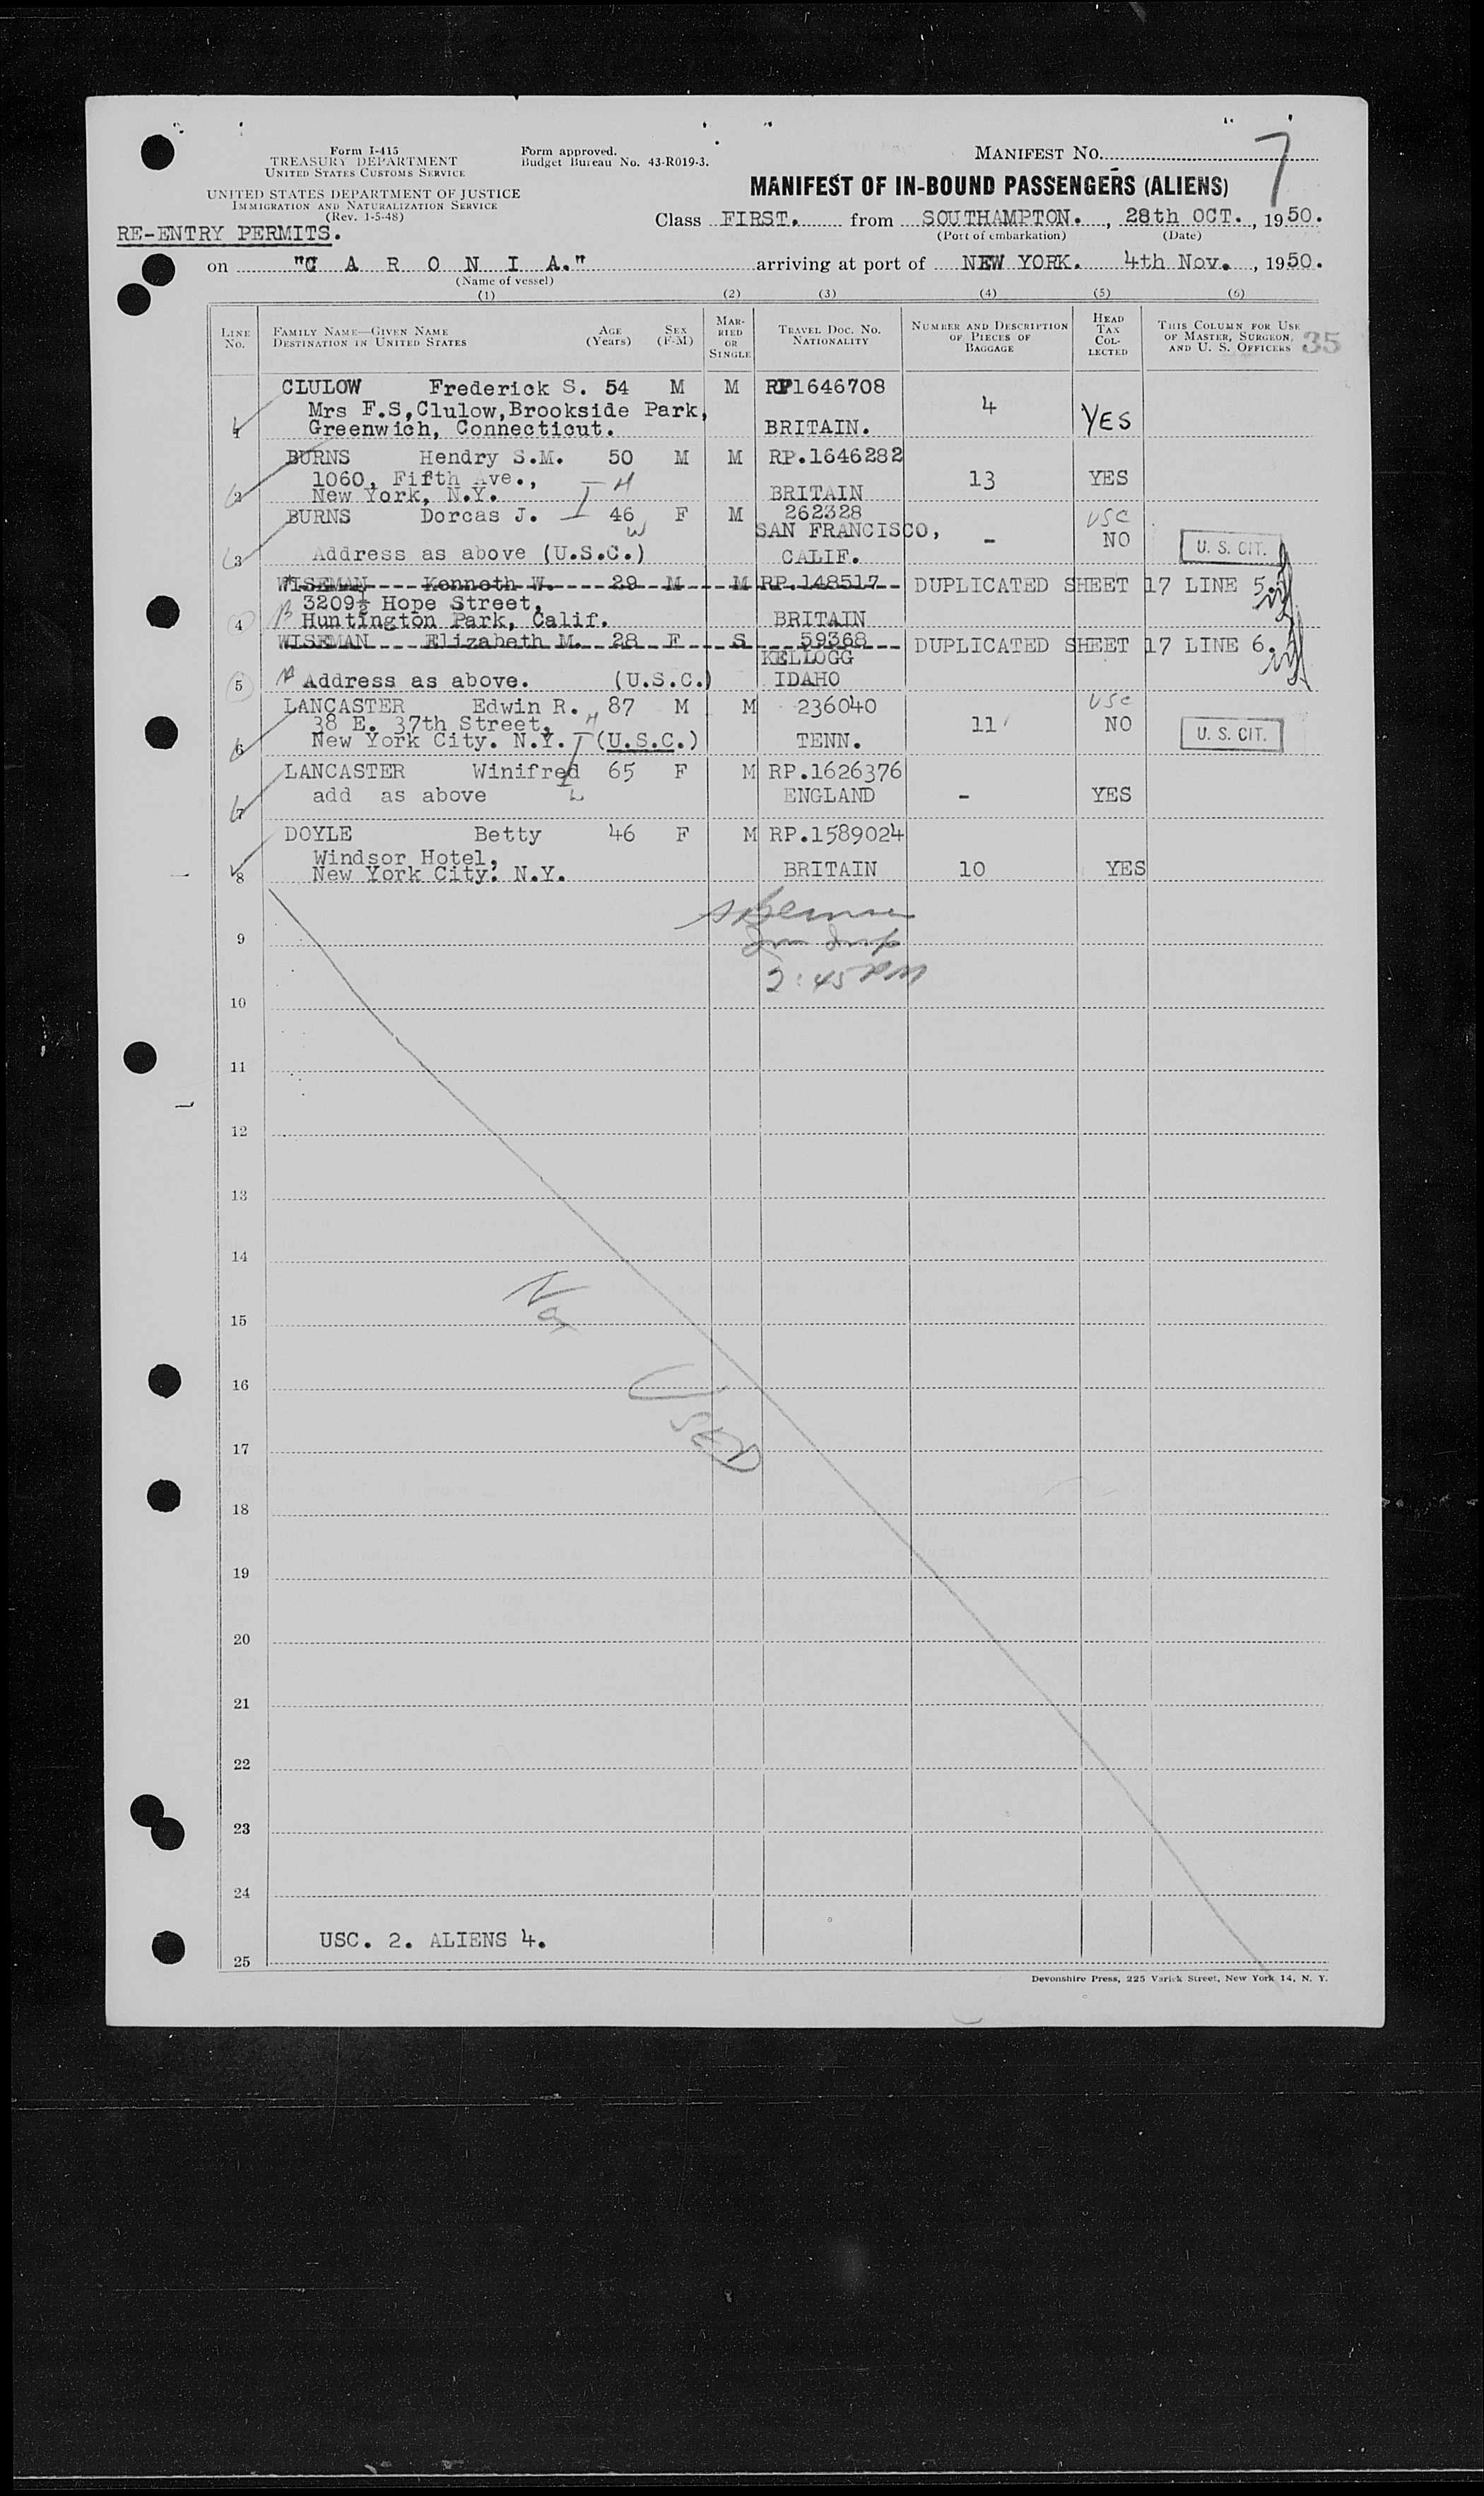 Form I-415
TREASURY DEPARTMENT
UNITED STATES CUSTOMS SERVICE
UNITED STATES DEPARTMENT OF JUSTICE
IMMIGRATION AND NATURALIZATION SERVICE
(Rev. 1-5-48)
Form approved.
Budget Bureau No. 43-R019-3.
MANIFEST NO. 7
MANIFEST OF IN-BOUND PASSENGERS (ALIENS)
Class FIRST. from SOUTHAMPTON., 28th OCT., 1950.
(Port of embarkation) (Date)
RE-ENTRY PERMITS.
on "C A R O N I A." arriving at port of NEW YORK. 4th Nov., 1950.
(Name of vessel)
(1) (2) (3) (4) (5) (6)
LINE NO. FAMILY NAME—GIVEN NAME DESTINATION IN UNITED STATES AGE (Years) SEX (F-M) MARRIED OR SINGLE TRAVEL DOC. NO. NATIONALITY NUMBER AND DESCRIPTION OF PIECES OF BAGGAGE HEAD TAX COLLECTED THIS COLUMN FOR USE OF MASTER, SURGEON, AND U. S. OFFICERS 35
CLULOW Frederick S. 54 M M RP1646708
Mrs F.S,Clulow,Brookside Park, 4
1 Greenwich, Connecticut. BRITAIN. YES
BURNS Hendry S.M. 50 M M RP.1646282
1060, Fifth Ave., H 13 YES
2 New York, N.Y. BRITAIN
BURNS Dorcas J. 46 F M 262328 USC
W SAN FRANCISCO, - NO U. S. CIT.
3 Address as above (U.S.C.) CALIF.
WISEMAN Kenneth W. 29 M M RP.148517 DUPLICATED SHEET 17 LINE 5.
3209½ Hope Street,
4 Huntington Park, Calif. BRITAIN
WISEMAN Elizabeth M. 28 F S 59368 DUPLICATED SHEET 17 LINE 6.
KELLOGG
5 Address as above. (U.S.C.) IDAHO
LANCASTER Edwin R. 87 M M 236040 USC
38 E. 37th Street, H 11 NO U. S. CIT.
6 New York City. N.Y. (U.S.C.) TENN.
LANCASTER Winifred 65 F M RP.1626376
7 add as above W ENGLAND - YES
DOYLE Betty 46 F M RP.1589024
Windsor Hotel,
8 New York City. N.Y. BRITAIN 10 YES
9
2:45 PM
10
11
12
13
14
Not
15
16
USED
17
18
19
20
21
22
23
24
USC. 2. ALIENS 4.
25
Devonshire Press, 225 Varick Street, New York 14, N. Y.